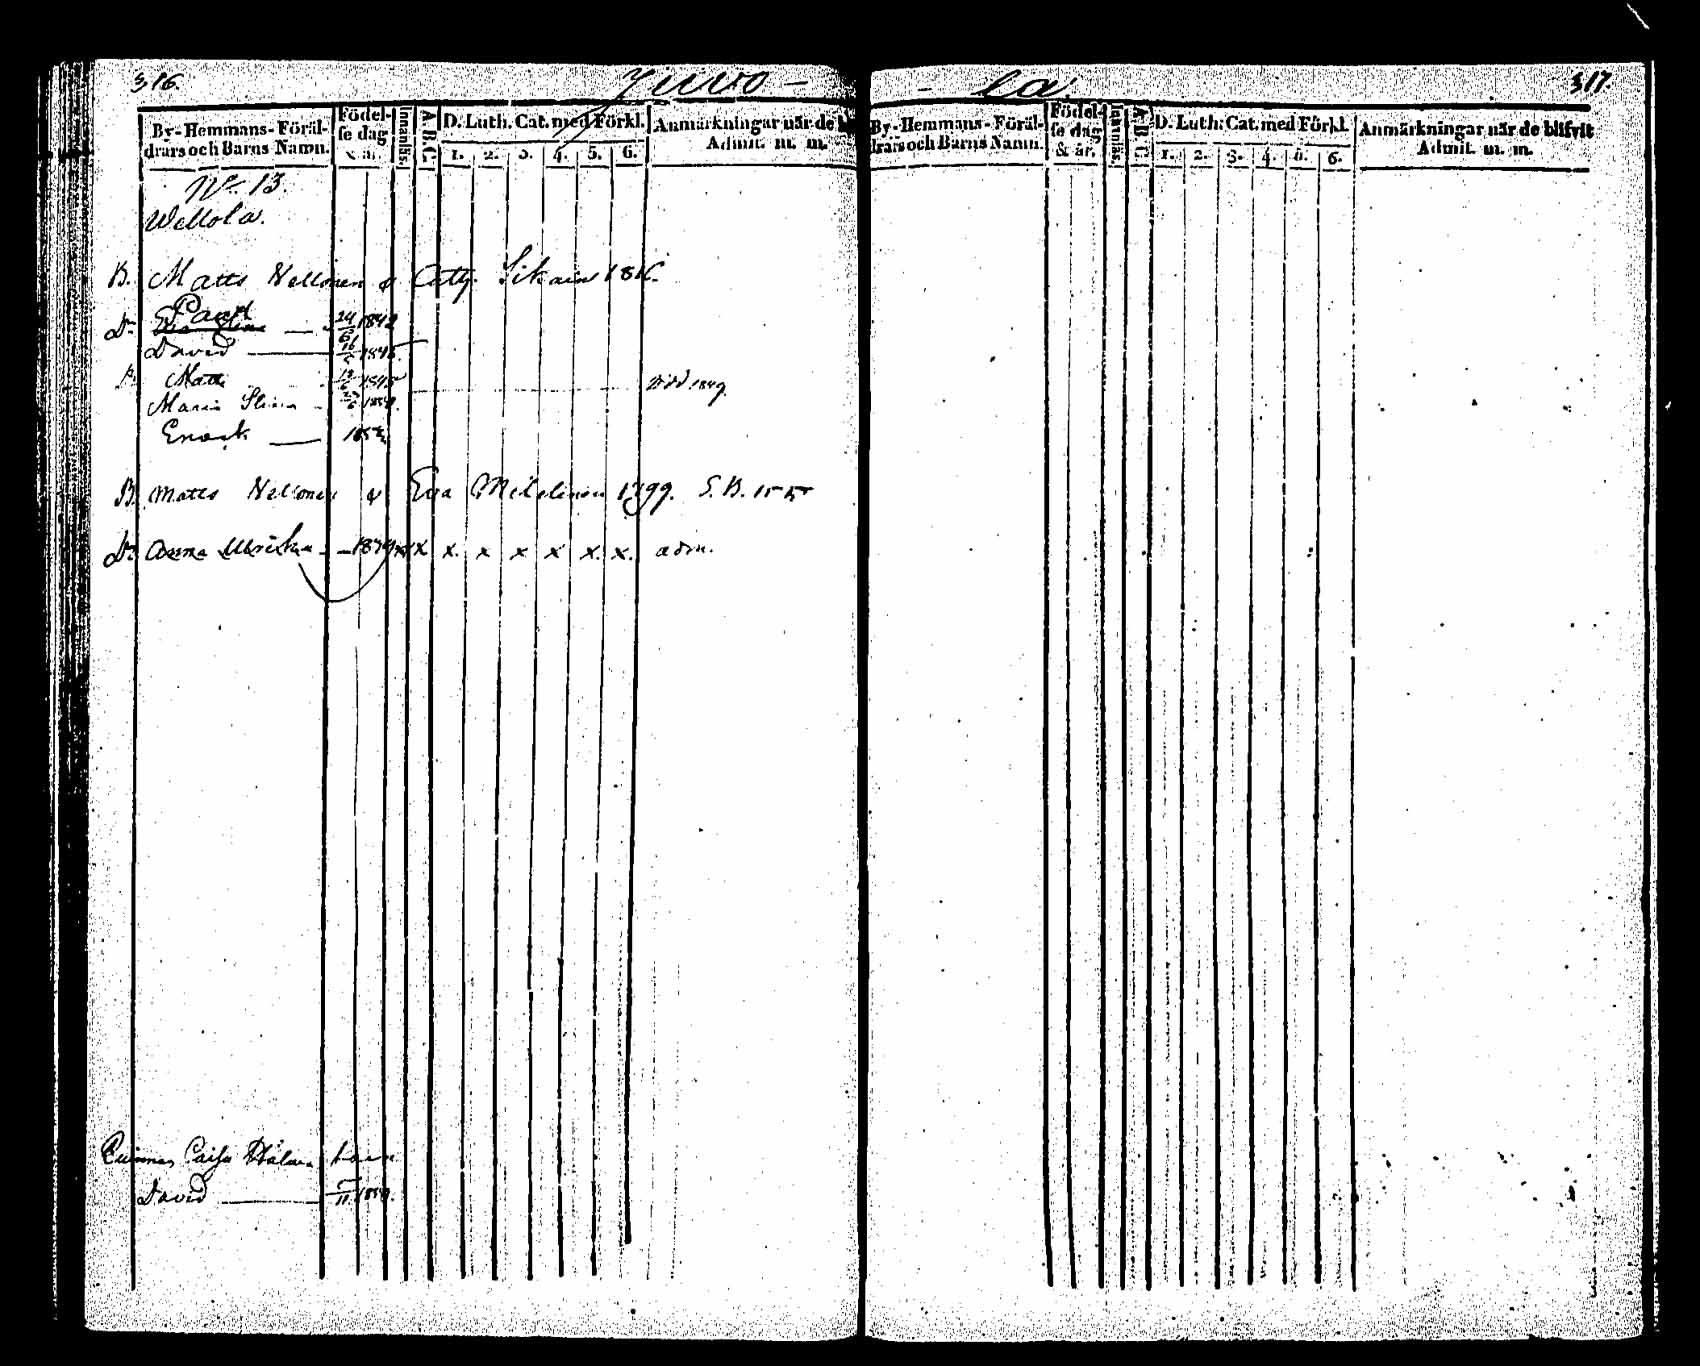 316.
Juvo-
By-Hemmans-Föräl-
drars och Barns Namn.
Födel-
se dag
& år.
Innanläs.
A.B.C.
D. Luth. Cat. med Förkl.
1. 2. 3. 4. 5. 6.
Anmärkningar när de
Admit. m. m.
No 13.
Wellola.
B. Matts Nellonen & Cath. Sikain 1816.
Paul
Dr 24/6 1842
David 16/5 184
Matts 12/6 1845 död 1849.
Maria Stina 6 1850.
Enock 185
B. Matts Nellonen & Eva Mikelinen 1799. S.B. 155
Dr Anna Ulrika - 18 x x x. x x x x. x. adm.
Caisa barn
David 11 1850.
- la.
317.
By-Hemmans-Föräl-
drars och Barns Namn.
Födel-
se dag
& år.
Innanläs.
A.B.C.
D. Luth. Cat. med Förkl.
1. 2. 3. 4. 5. 6.
Anmärkningar när de blifvit
Admit. m. m.